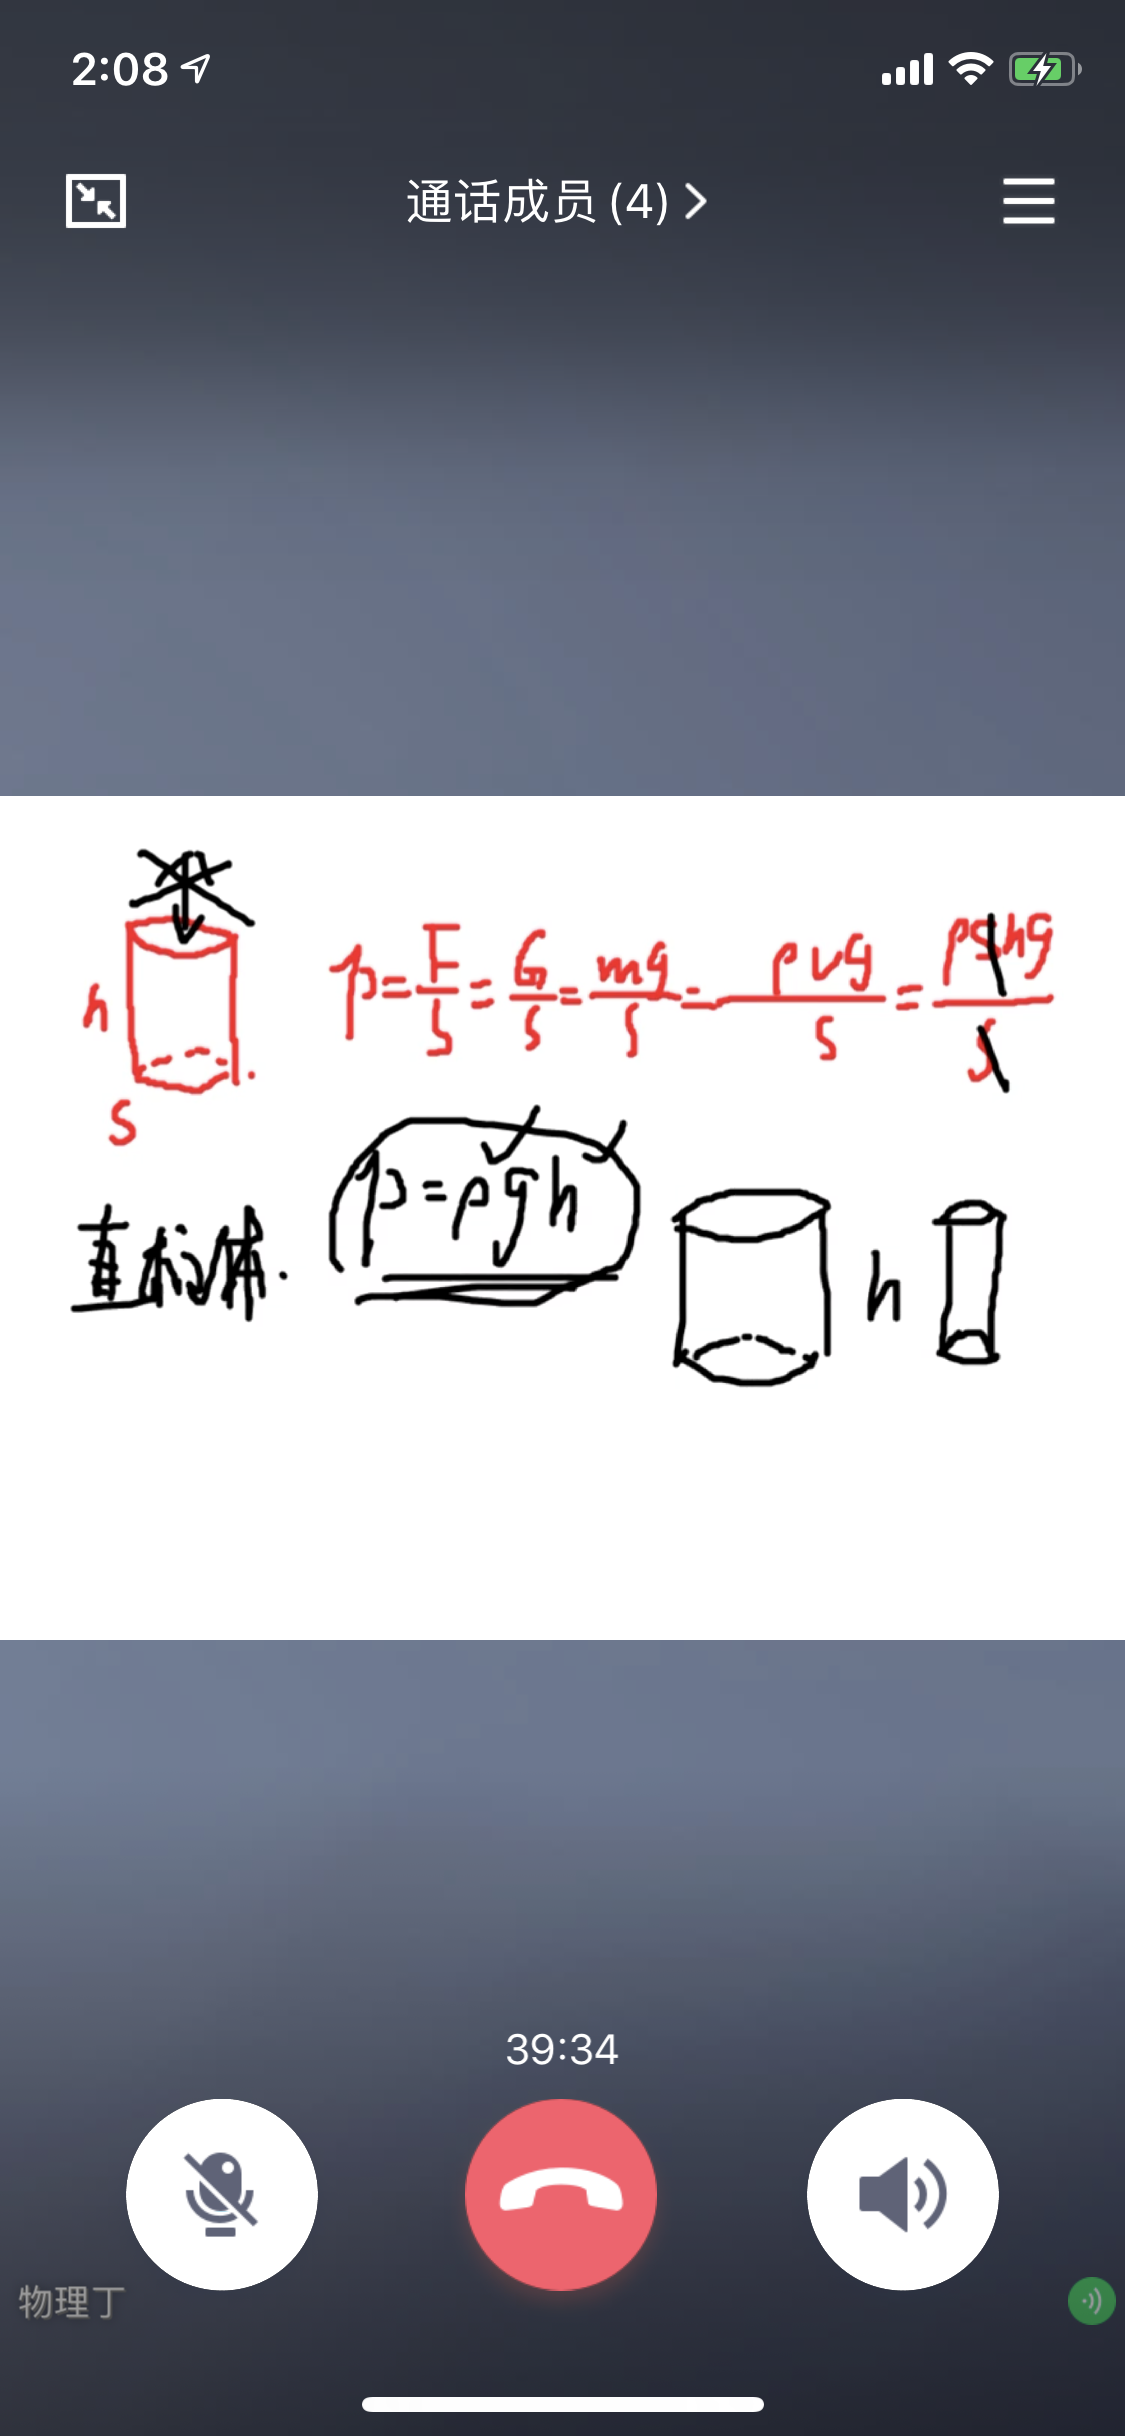 2:08
通话成员(4)
h
S
p=F/S=G/S=mg/S=ρvg/S=ρshg/S
直柱体.
p=ρgh
h
39:34
物理丁